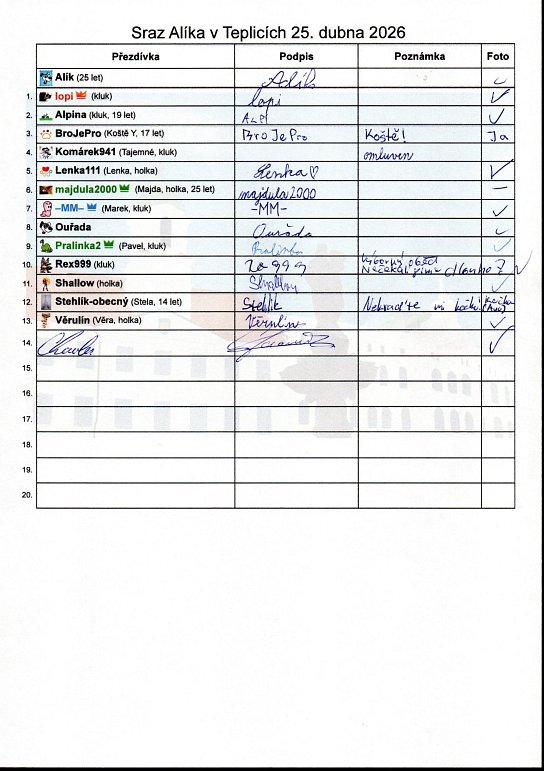 Sraz Alíka v Teplicích 25. dubna 2026
Přezdívka Podpis Poznámka Foto
Alík (25 let) Alík
1. lopi (kluk) lopi
2. Alpina (kluk, 19 let) ALPI
3. BroJePro (Koště Y, 17 let) BroJePro Koště! Ja
4. Komárek941 (Tajemné, kluk) omluven
5. Lenka111 (Lenka, holka) Lenka♡
6. majdula2000 (Majda, holka, 25 let) majdula2000 –
7. –MM– (Marek, kluk) -MM-
8. Ouřada Ouřada
9. Pralinka2 (Pavel, kluk) Pralinka
10. Rex999 (kluk) Výborný oběd
11. Shallow (holka) Shallow
12. Stehlík-obecný (Stela, 14 let) Stehlík Nekraďte mi kočku!
13. Věrulín (Věra, holka) Věrulín
14.
15.
16.
17.
18.
19.
20.